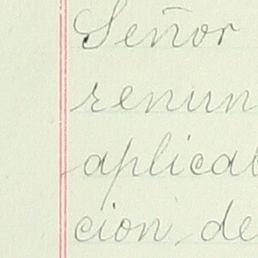 Señor
renun
aplicab
cion de